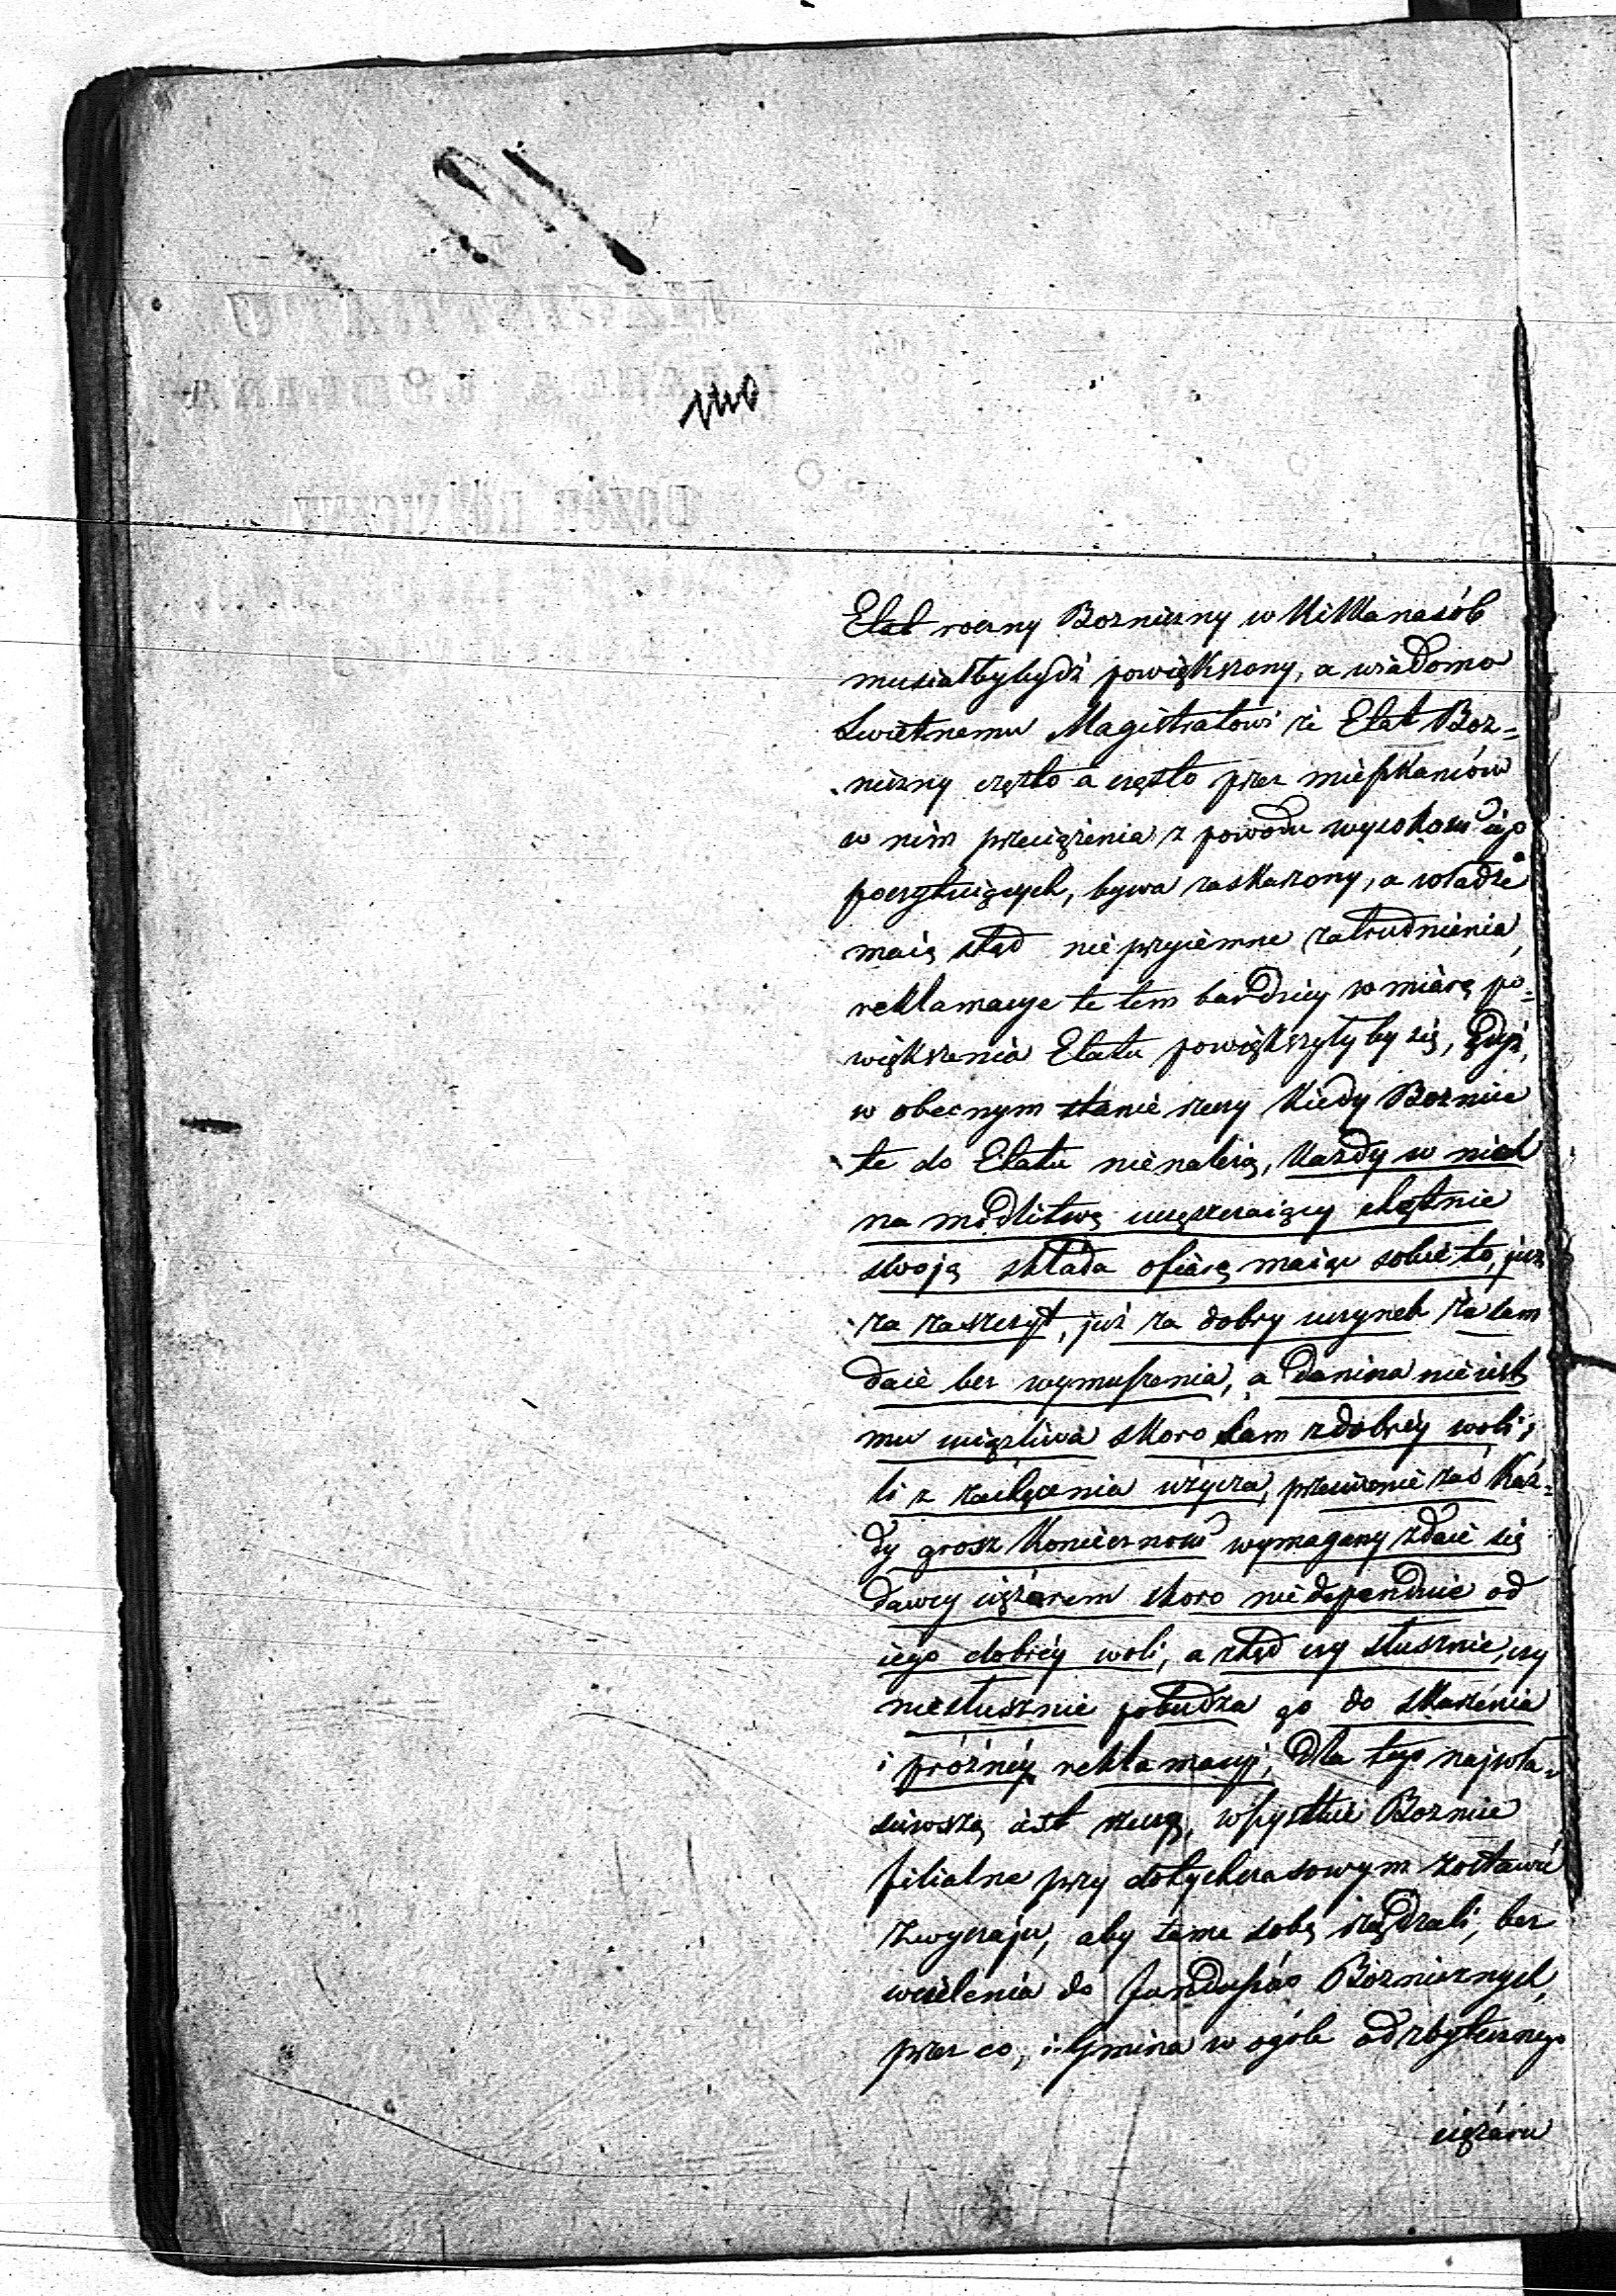 Etat roczny Bozniczny w kilkanasób
musiałbybydź powiększony, a wiadomo
Swietnemu Magistratowi że Etat Boz=
niczny często a często przez mieszkańców
w nim przeciążenia z powodu wysokości iego
poczytuiących, bywa zaskarzony, a władze
maią stąd nieprzyiemne zatrudnienia,
reklamacye te tem bardziey w miarę po=
większenia Etatu powiększyłyby się, gdyż,
w obecnym stanie rzeczy kiedy Boznice
te do Etatu nienależą, każdy w nich
na modlitwę uczęszczaiący chętnie
swoją składa ofiarę maiąc sobie to, już
za zaszczyt, już za dobry uczynek że sam
daie bez wymuszenia, a danina nieiest
mu uciążliwa skoro sam z dobréy woli,
li z zachęcenia użycza, przeciwnie zaś każ=
dy grosz koniecznow wymagany zdaie się
dawcy ciężarem skoro niedependuie od
iego dobréy woli, a ztąd czy słusznie, czy
niesłusznie pobudza go do skarżenia
i próżnéy reklamacyi, dla tego najwła=
sciwszą iest rzeczą, wszystkie Boznice
filialne przy dotychczasowym zostawić
zwyczaju, aby same sobą rządzali, bez
wcielenia do funduszów Bozniczych,
przez co, i Gmina w ogóle od zbytecznego
ciężaru